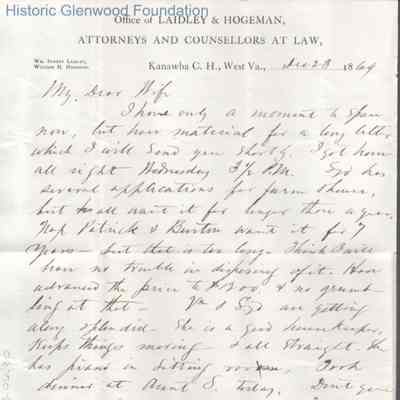 Historic Glenwood Foundation
Office of LAIDLEY & HOGEMAN,
ATTORNEYS AND COUNSELLORS AT LAW,
WM. SYDNEY LAIDLEY,
WILLIAM H. HOGEMAN.
Kanawha C. H., West Va., Dec 23 1869
My Dear Wife
I have only a moment to spare
now, but have material for a long letter
which I will send you shortly. I got home
all right Wednesday 3½ P.M. Syd has
several applications for farm
but all want it for longer than a year.
Nap Patrick & Burton want it for 7
years — but that is too long. Think I will
have no trouble in disposing of it. Have
advanced the price to $1200 & no grumb
ling at that — Va & Syd are getting
along splendid. She is a good housekeeper,
Keeps things moving & all straight. She
has piano in sitting room. Took
dinner at Aunt S. today. Don't give